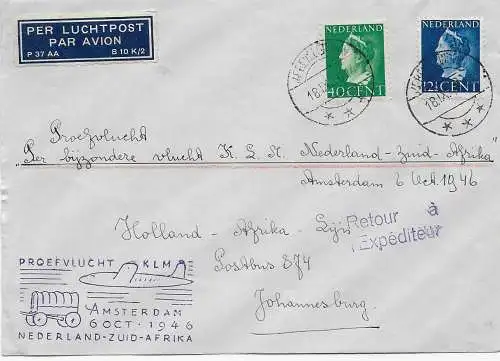 PER LUCHTPOST
PAR AVION
P 37 AA B 10 K/2
NEDERLAND
40 CENT
NEDERLAND
12½ CENT
18.IX
18.IX
Proefvlucht
"Per bijzondere vlucht K.L.M. Nederland-Zuid-Afrika
Amsterdam 6 Oct. 1946
Holland-Afrika-Lijn
Postbus 874
Johannesburg
Retour à
l'Expéditeur
PROEFVLUCHT KLM
AMSTERDAM
6 OCT. 1946
NEDERLAND-ZUID-AFRIKA